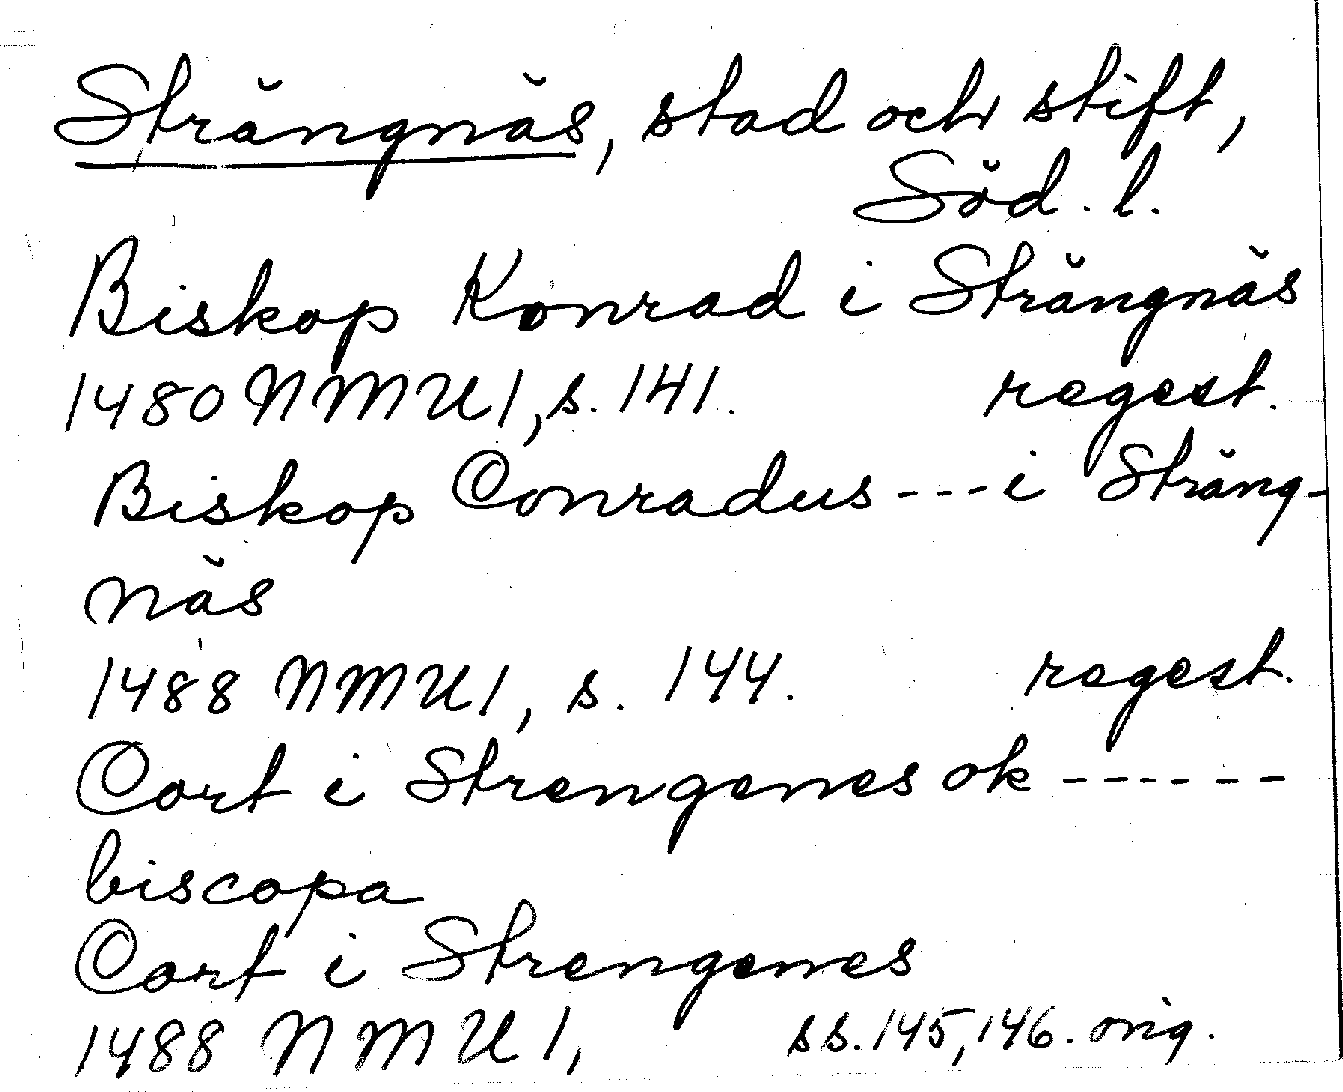 Strängnäs, stad och stift,
Söd. l.
Biskop Konrad i Strängnäs
1480 NMU 1, s. 141. regest.
Biskop Conradus --- i Sträng-
näs
1488 NMU 1, s. 144. regest.
Cort i Strengenes ok ------
biscopa
Cort i Strengenes
1488 NMU 1, ss. 145, 146. orig.